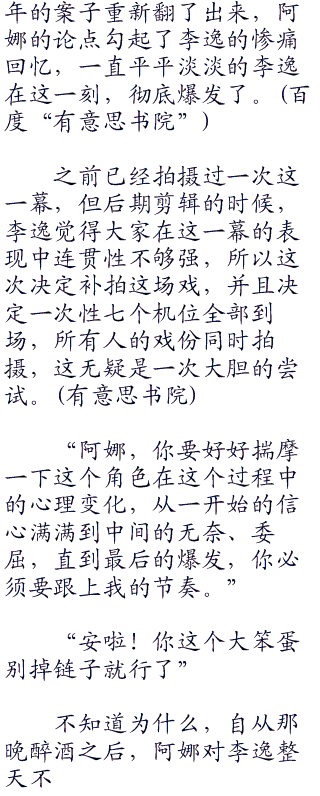 年的案子重新翻了出来，阿
娜的论点勾起了李逸的惨痛
回忆，一直平平淡淡的李逸
在这一刻，彻底爆发了。(百
度“有意思书院”)
之前已经拍摄过一次这
一幕，但后期剪辑的时候，
李逸觉得大家在这一幕的表
现中连贯性不够强，所以这
次决定补拍这场戏，并且决
定一次性七个机位全部到
场，所有人的戏份同时拍
摄，这无疑是一次大胆的尝
试。(有意思书院)
“阿娜，你要好好揣摩
一下这个角色在这个过程中
的心理变化，从一开始的信
心满满到中间的无奈、委
屈，直到最后的爆发，你必
须要跟上我的节奏。”
“安啦！你这个大笨蛋
别掉链子就行了”
不知道为什么，自从那
晚醉酒之后，阿娜对李逸整
天不